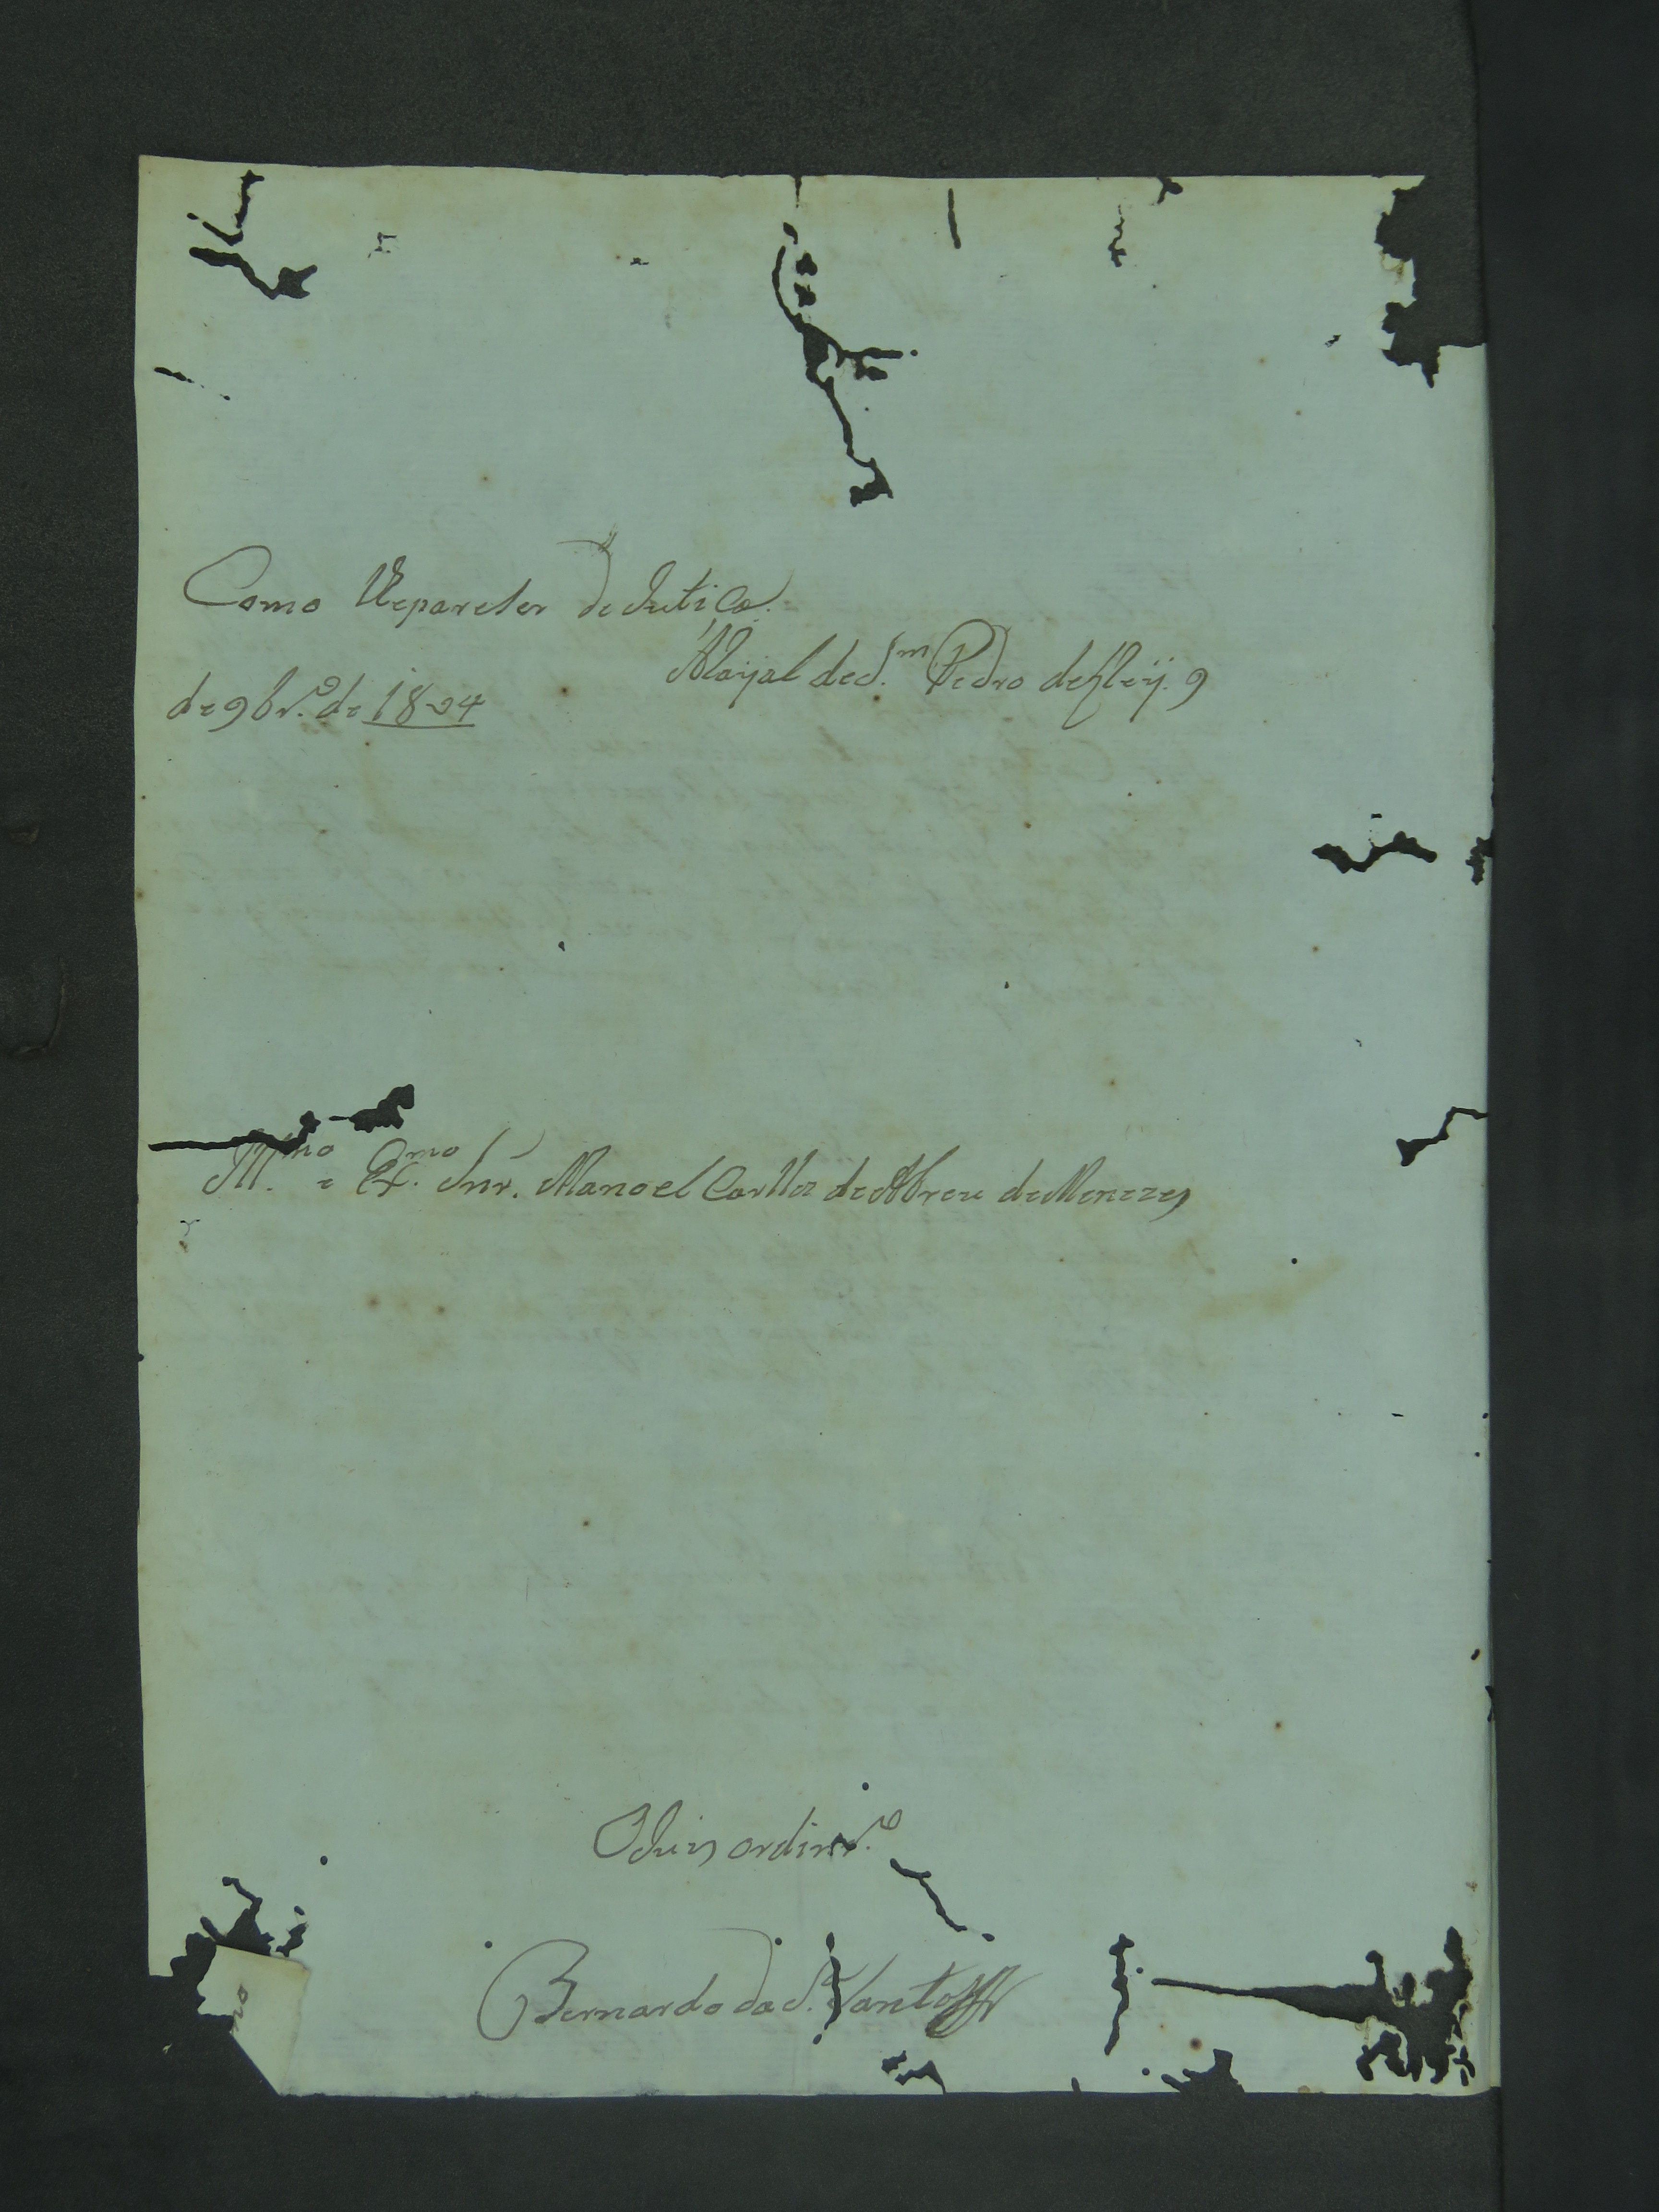 Como lhe parecer de Jutiça.
Arayal de S.m Pedro de ElRey. 9
de 9br.o de 1804
Ill.mo e Ex.mo Snr. Manoel Carllos de Abreu de Menezes
O Juis ordinr.o
Bernardo da S.a Santos
no